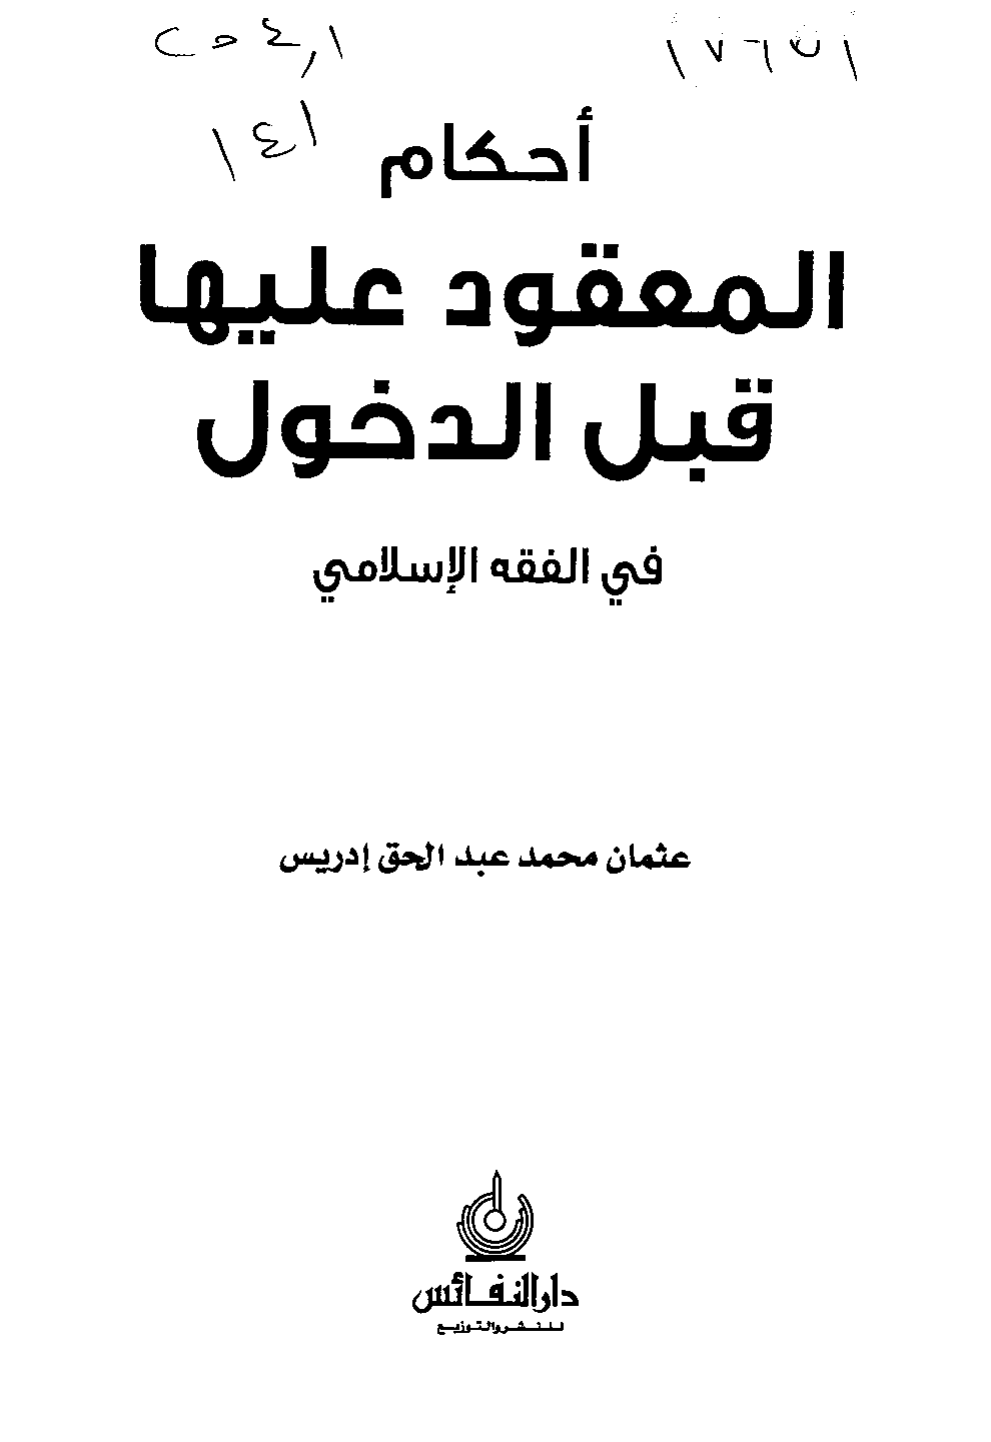 أحكام
المعقود عليها
قبل الدخول
في الفقه الإسلامي
عثمان محمد عبد الحق إدريس
دار النفائس
للنشر والتوزيع